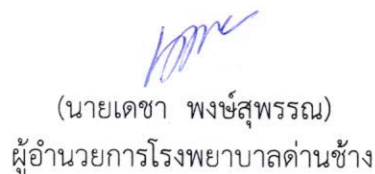 (นายเดชา พงษ์สุพรรณ)
ผู้อำนวยการโรงพยาบาลด่านช้าง